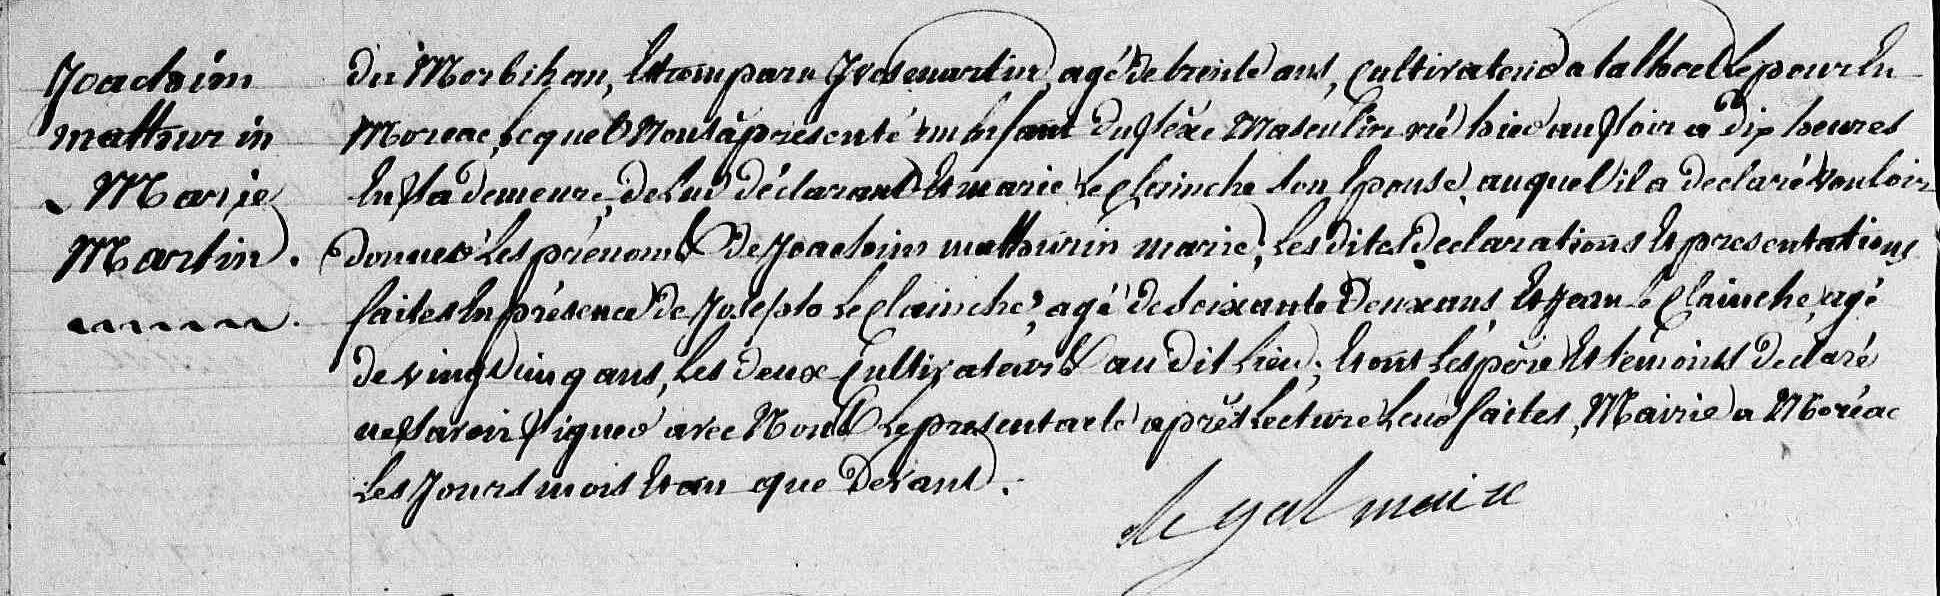 Joachim
mathurin
Marie
Martin.
du Morbihan, Est comparu Yves martin, agé de trente ans, Cultivateur a talhoet Lepour En
Moreac, Lequel Nous à présenté un Enfant du sexe Masculin né hier au soir a dix heures
En sa demeure, de Lui déclarant Et marie Le Clainche son Epouse, auquel il a declaré Vouloir
donner Les prénoms de Joachim mathurin marie, Les dites declarations Et presentations
faites En présence de Joseph Le Clainche, agé de soixante Deux ans, Et Jean Le Clainche, agé
de vingt cinq ans, Les deux Cultivateurs au dit Lieu; Et ont Les père Et témoins declaré
ne savoir signer avec Nous Le present acte après Lecture Leur faites, Mairie a Moréac
Les Jours mois Et an que Devant.
Le gal maire